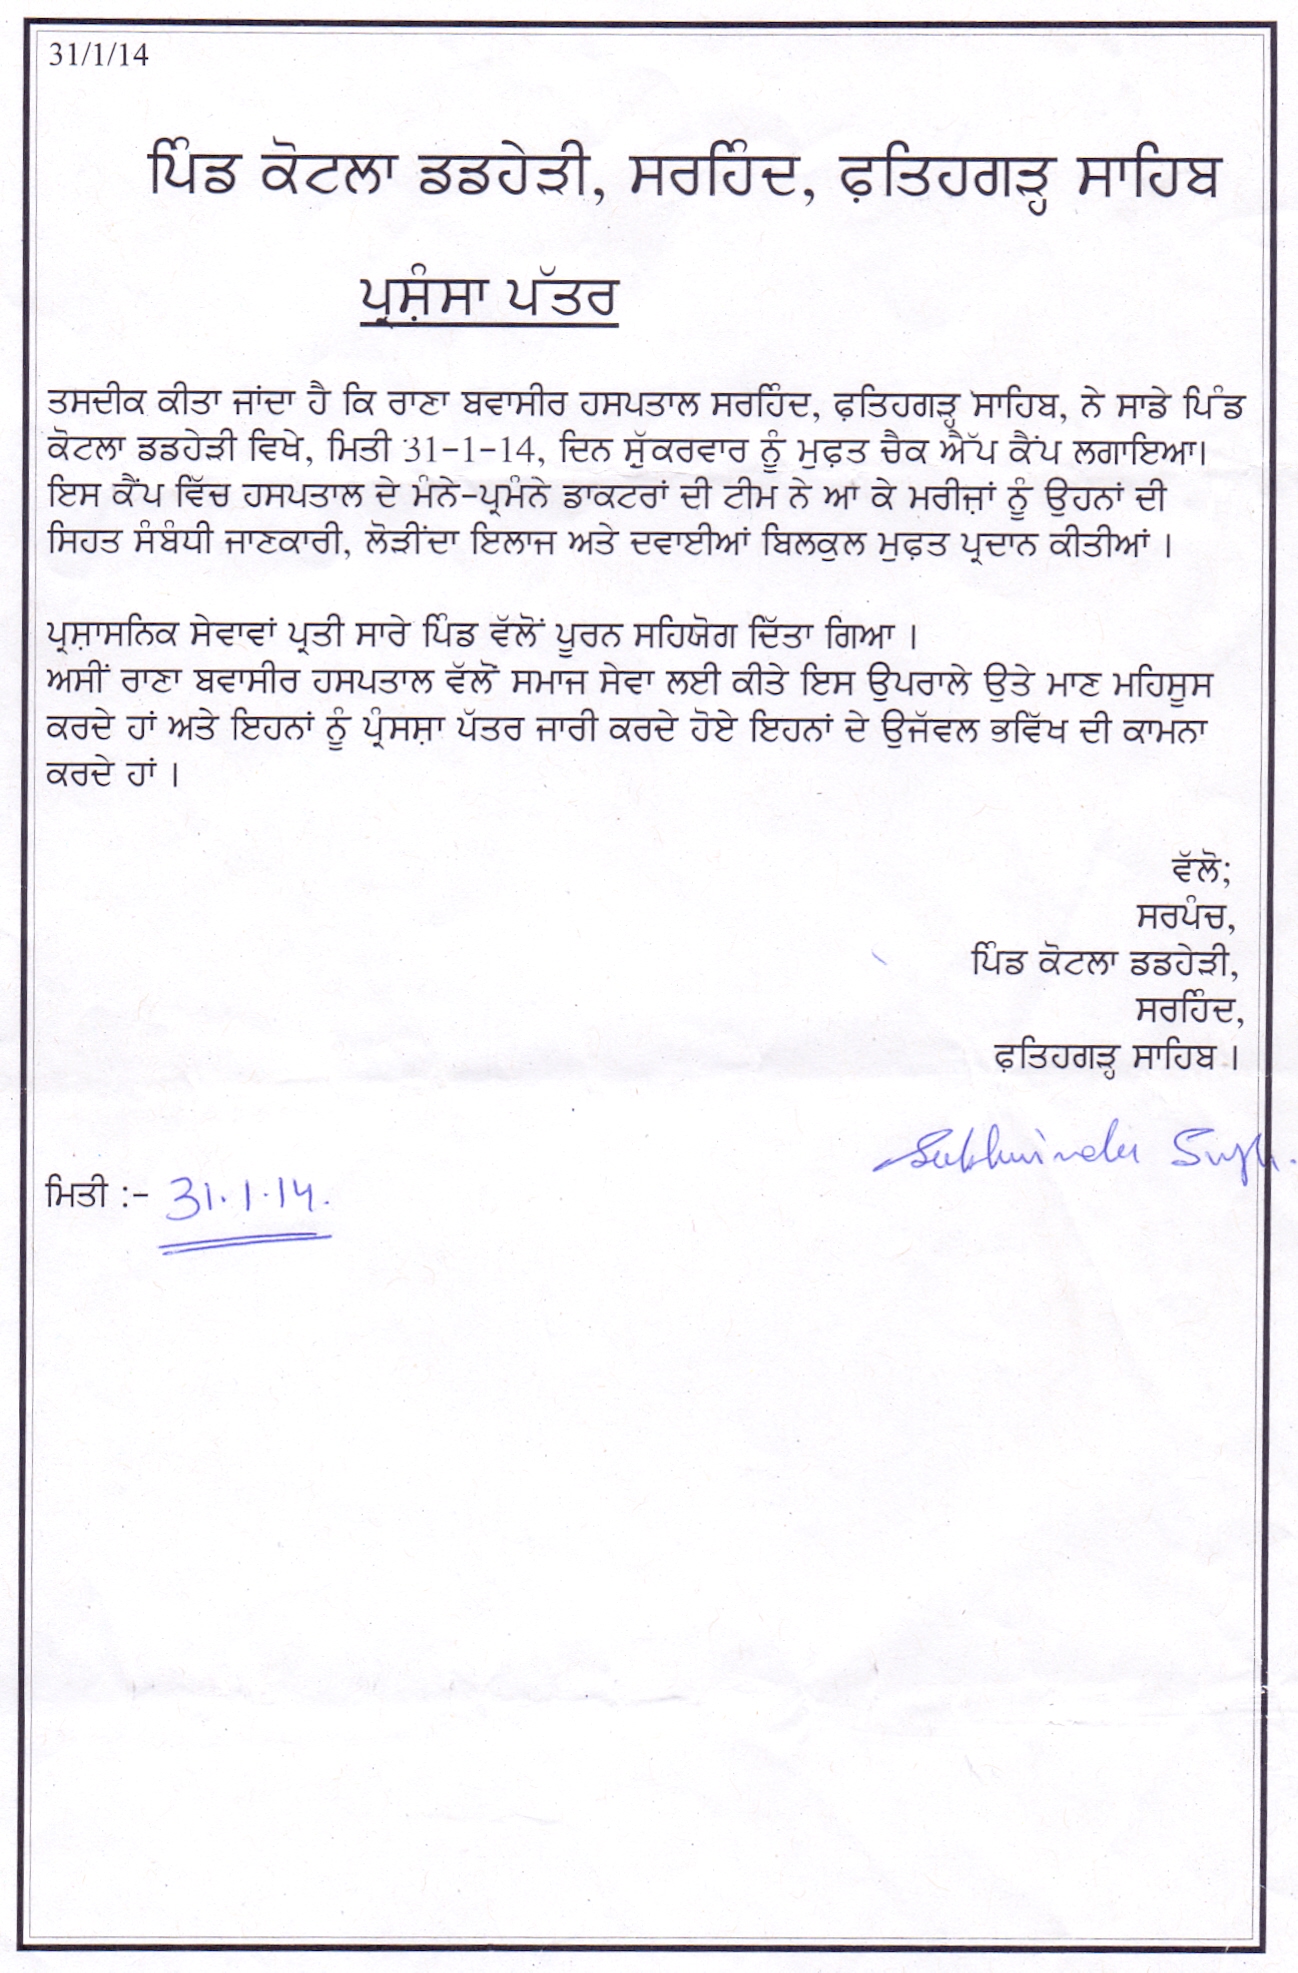 31/1/14
ਪਿੰਡ ਕੋਟਲਾ ਡਡਹੇੜੀ, ਸਰਹਿੰਦ, ਫ਼ਤਿਹਗੜ੍ਹ ਸਾਹਿਬ
ਪ੍ਰਸ਼ੰਸਾ ਪੱਤਰ
ਤਸਦੀਕ ਕੀਤਾ ਜਾਂਦਾ ਹੈ ਕਿ ਰਾਣਾ ਬਵਾਸੀਰ ਹਸਪਤਾਲ ਸਰਹਿੰਦ, ਫ਼ਤਿਹਗੜ੍ਹ ਸਾਹਿਬ, ਨੇ ਸਾਡੇ ਪਿੰਡ
ਕੋਟਲਾ ਡਡਹੇੜੀ ਵਿਖੇ, ਮਿਤੀ 31-1-14, ਦਿਨ ਸ਼ੁੱਕਰਵਾਰ ਨੂੰ ਮੁਫ਼ਤ ਚੈਕ ਐੱਪ ਕੈਂਪ ਲਗਾਇਆ।
ਇਸ ਕੈਂਪ ਵਿੱਚ ਹਸਪਤਾਲ ਦੇ ਮੰਨੇ-ਪ੍ਰਮੰਨੇ ਡਾਕਟਰਾਂ ਦੀ ਟੀਮ ਨੇ ਆ ਕੇ ਮਰੀਜ਼ਾਂ ਨੂੰ ਉਹਨਾਂ ਦੀ
ਸਿਹਤ ਸੰਬੰਧੀ ਜਾਣਕਾਰੀ, ਲੋੜੀਂਦਾ ਇਲਾਜ ਅਤੇ ਦਵਾਈਆਂ ਬਿਲਕੁਲ ਮੁਫ਼ਤ ਪ੍ਰਦਾਨ ਕੀਤੀਆਂ ।
ਪ੍ਰਸ਼ਾਸਨਿਕ ਸੇਵਾਵਾਂ ਪ੍ਰਤੀ ਸਾਰੇ ਪਿੰਡ ਵੱਲੋਂ ਪੂਰਨ ਸਹਿਯੋਗ ਦਿੱਤਾ ਗਿਆ ।
ਅਸੀਂ ਰਾਣਾ ਬਵਾਸੀਰ ਹਸਪਤਾਲ ਵੱਲੋਂ ਸਮਾਜ ਸੇਵਾ ਲਈ ਕੀਤੇ ਇਸ ਉਪਰਾਲੇ ਉਤੇ ਮਾਣ ਮਹਿਸੂਸ
ਕਰਦੇ ਹਾਂ ਅਤੇ ਇਹਨਾਂ ਨੂੰ ਪ੍ਰੰਸਸ਼ਾ ਪੱਤਰ ਜਾਰੀ ਕਰਦੇ ਹੋਏ ਇਹਨਾਂ ਦੇ ਉਜੱਵਲ ਭਵਿੱਖ ਦੀ ਕਾਮਨਾ
ਕਰਦੇ ਹਾਂ ।
ਵੱਲੋ;
ਸਰਪੰਚ,
ਪਿੰਡ ਕੋਟਲਾ ਡਡਹੇੜੀ,
ਸਰਹਿੰਦ,
ਫ਼ਤਿਹਗੜ੍ਹ ਸਾਹਿਬ ।
Sukhwinder Singh.
ਮਿਤੀ :- 31.1.14.